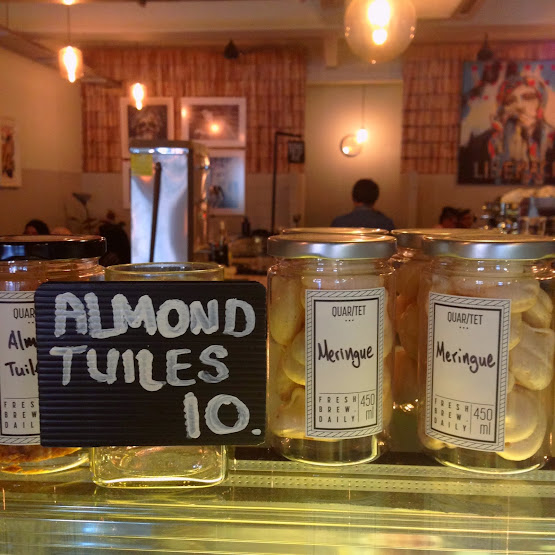 ALMOND
TUILES
10.
Alm
Tuil
FRESH
BREW
DAILY
QUAR/TET
Meringue
FRESH
BREW
DAILY
450
ml
QUAR/TET
Meringue
FRESH
BREW
DAILY
450
ml